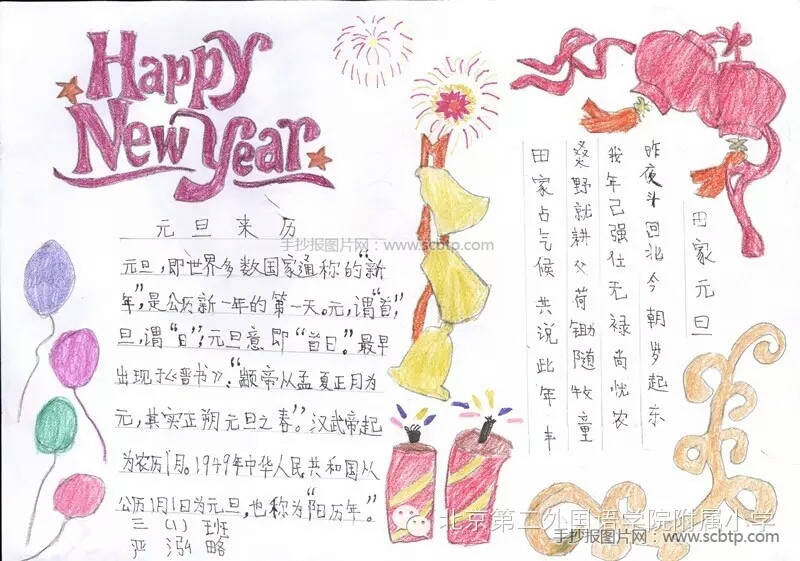 Happy
New Year
元旦来历
手抄报图片网:www.scbtp.com
元旦,即世界多数国家通称的“新
年”,是公历新一年的第一天。元,谓“首”,
旦,谓“日”;元旦意即“首日”。最早
出现于《晋书》:“颛帝从孟夏正月为
元,其实正朔元旦之春”。汉武帝起
为农历1月。1949年中华人民共和国从
公历1月1日为元旦,也称为“阳历年”。
三(1)班
严泓略
田家元旦
昨夜斗回北今朝岁起东
我年已强仕无禄尚忧农
桑野就耕父荷锄随牧童
田家占气候共说此年丰
北京第二外国语学院附属小学
手抄报图片网:www.scbtp.com